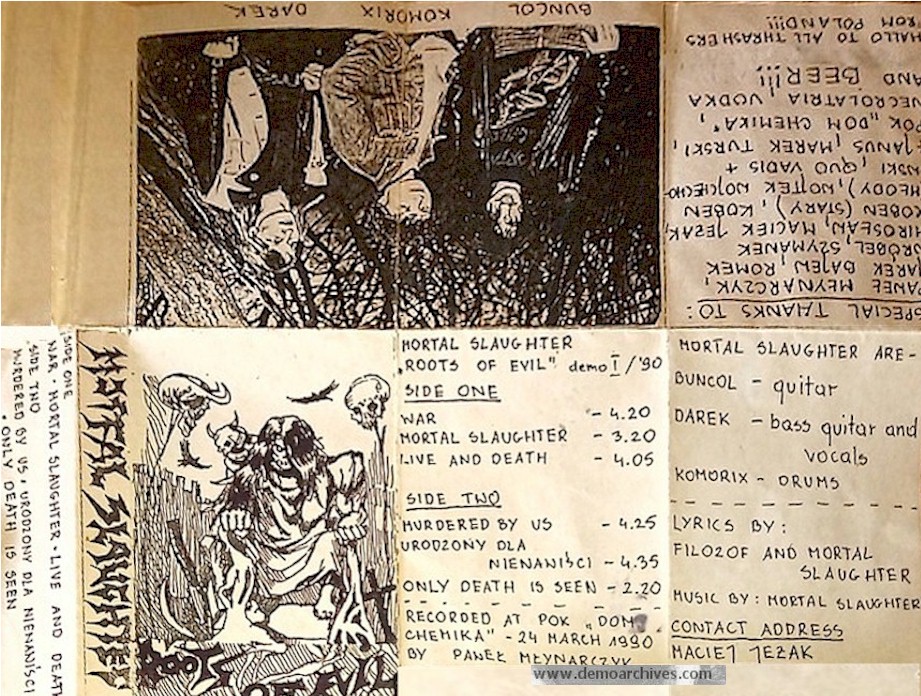 BUNCOL
KOMORIX
DAREK
SPECIAL THANKS TO:
PAWEŁ MŁYNARCZYK,
JAREK BAJEN, ROMEK
WRÓBEL, SZYMANEK
MIROSŁAW, MACIEK JEŻAK,
KOBEN (STARY), KOBEN
MŁODY), WOJTEK WOJCIECHO-
WSKI, QUO VADIS +
JANUS, MAREK TURSKI,
POK „DOM CHEMIKA",
NECROLATRIA, VODKA
AND BEER!!!
HALLO TO ALL THRASHERS
FROM POLAND!!!
SIDE ONE
WAR • MORTAL SLAUGHTER • LIVE AND DEATH
SIDE TWO
MURDERED BY US, URODZONY DLA NIENANIŚCI
• ONLY DEATH IS SEEN
MORTAL SLAUGHTER
ROOTS OF EVIL
MORTAL SLAUGHTER
„ROOTS OF EVIL" demo I /'90
SIDE ONE
WAR - 4.20
MORTAL SLAUGHTER - 3.20
LIVE AND DEATH - 4.05
SIDE TWO
MURDERED BY US - 4.25
URODZONY DLA
NIENANIŚCI - 4.35
ONLY DEATH IS SEEN - 2.20
RECORDED AT POK „DOM
CHEMIKA" - 24 MARCH 1990
BY PAWEŁ MŁYNARCZYK
MORTAL SLAUGHTER ARE-
BUNCOL - guitar
DAREK - bass guitar and
vocals
KOMORIX - DRUMS
LYRICS BY:
FILOZOF AND MORTAL
SLAUGHTER
MUSIC BY: MORTAL SLAUGHTER
CONTACT ADDRESS
MACIEJ JEŻAK
www.demoarchives.com